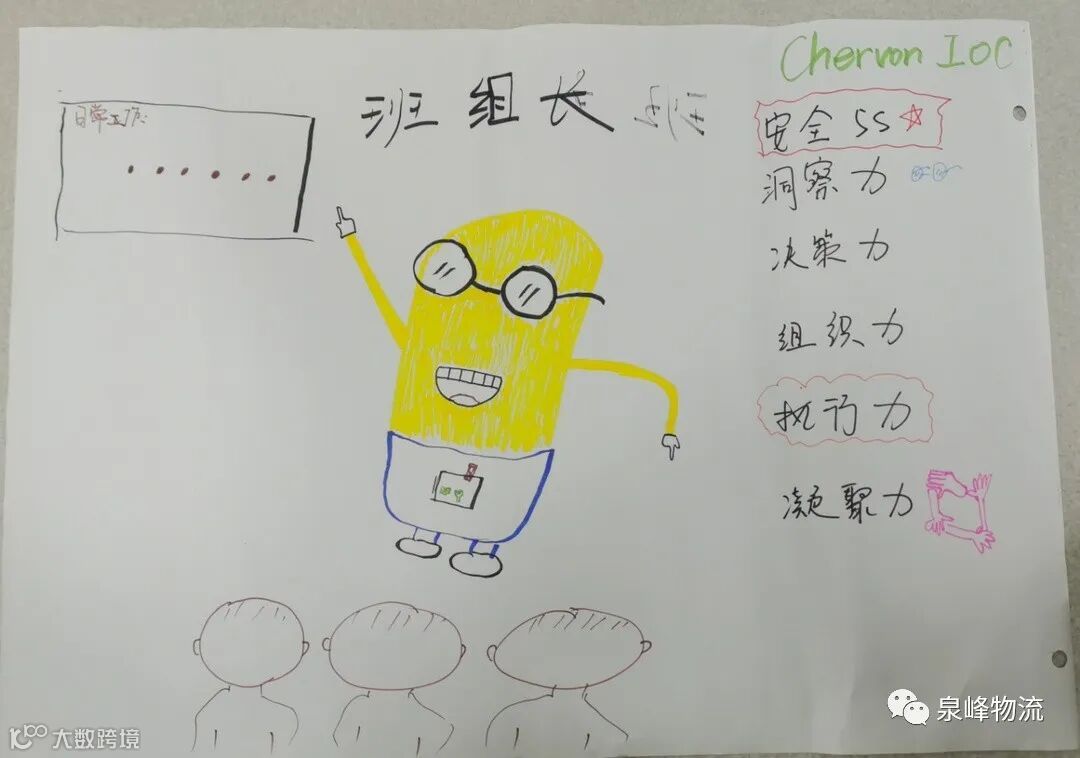 Chervon IOC
班组长
日常工作:
安全 5S
洞察力
决策力
组织力
执行力
凝聚力
泉峰物流
大数跨境